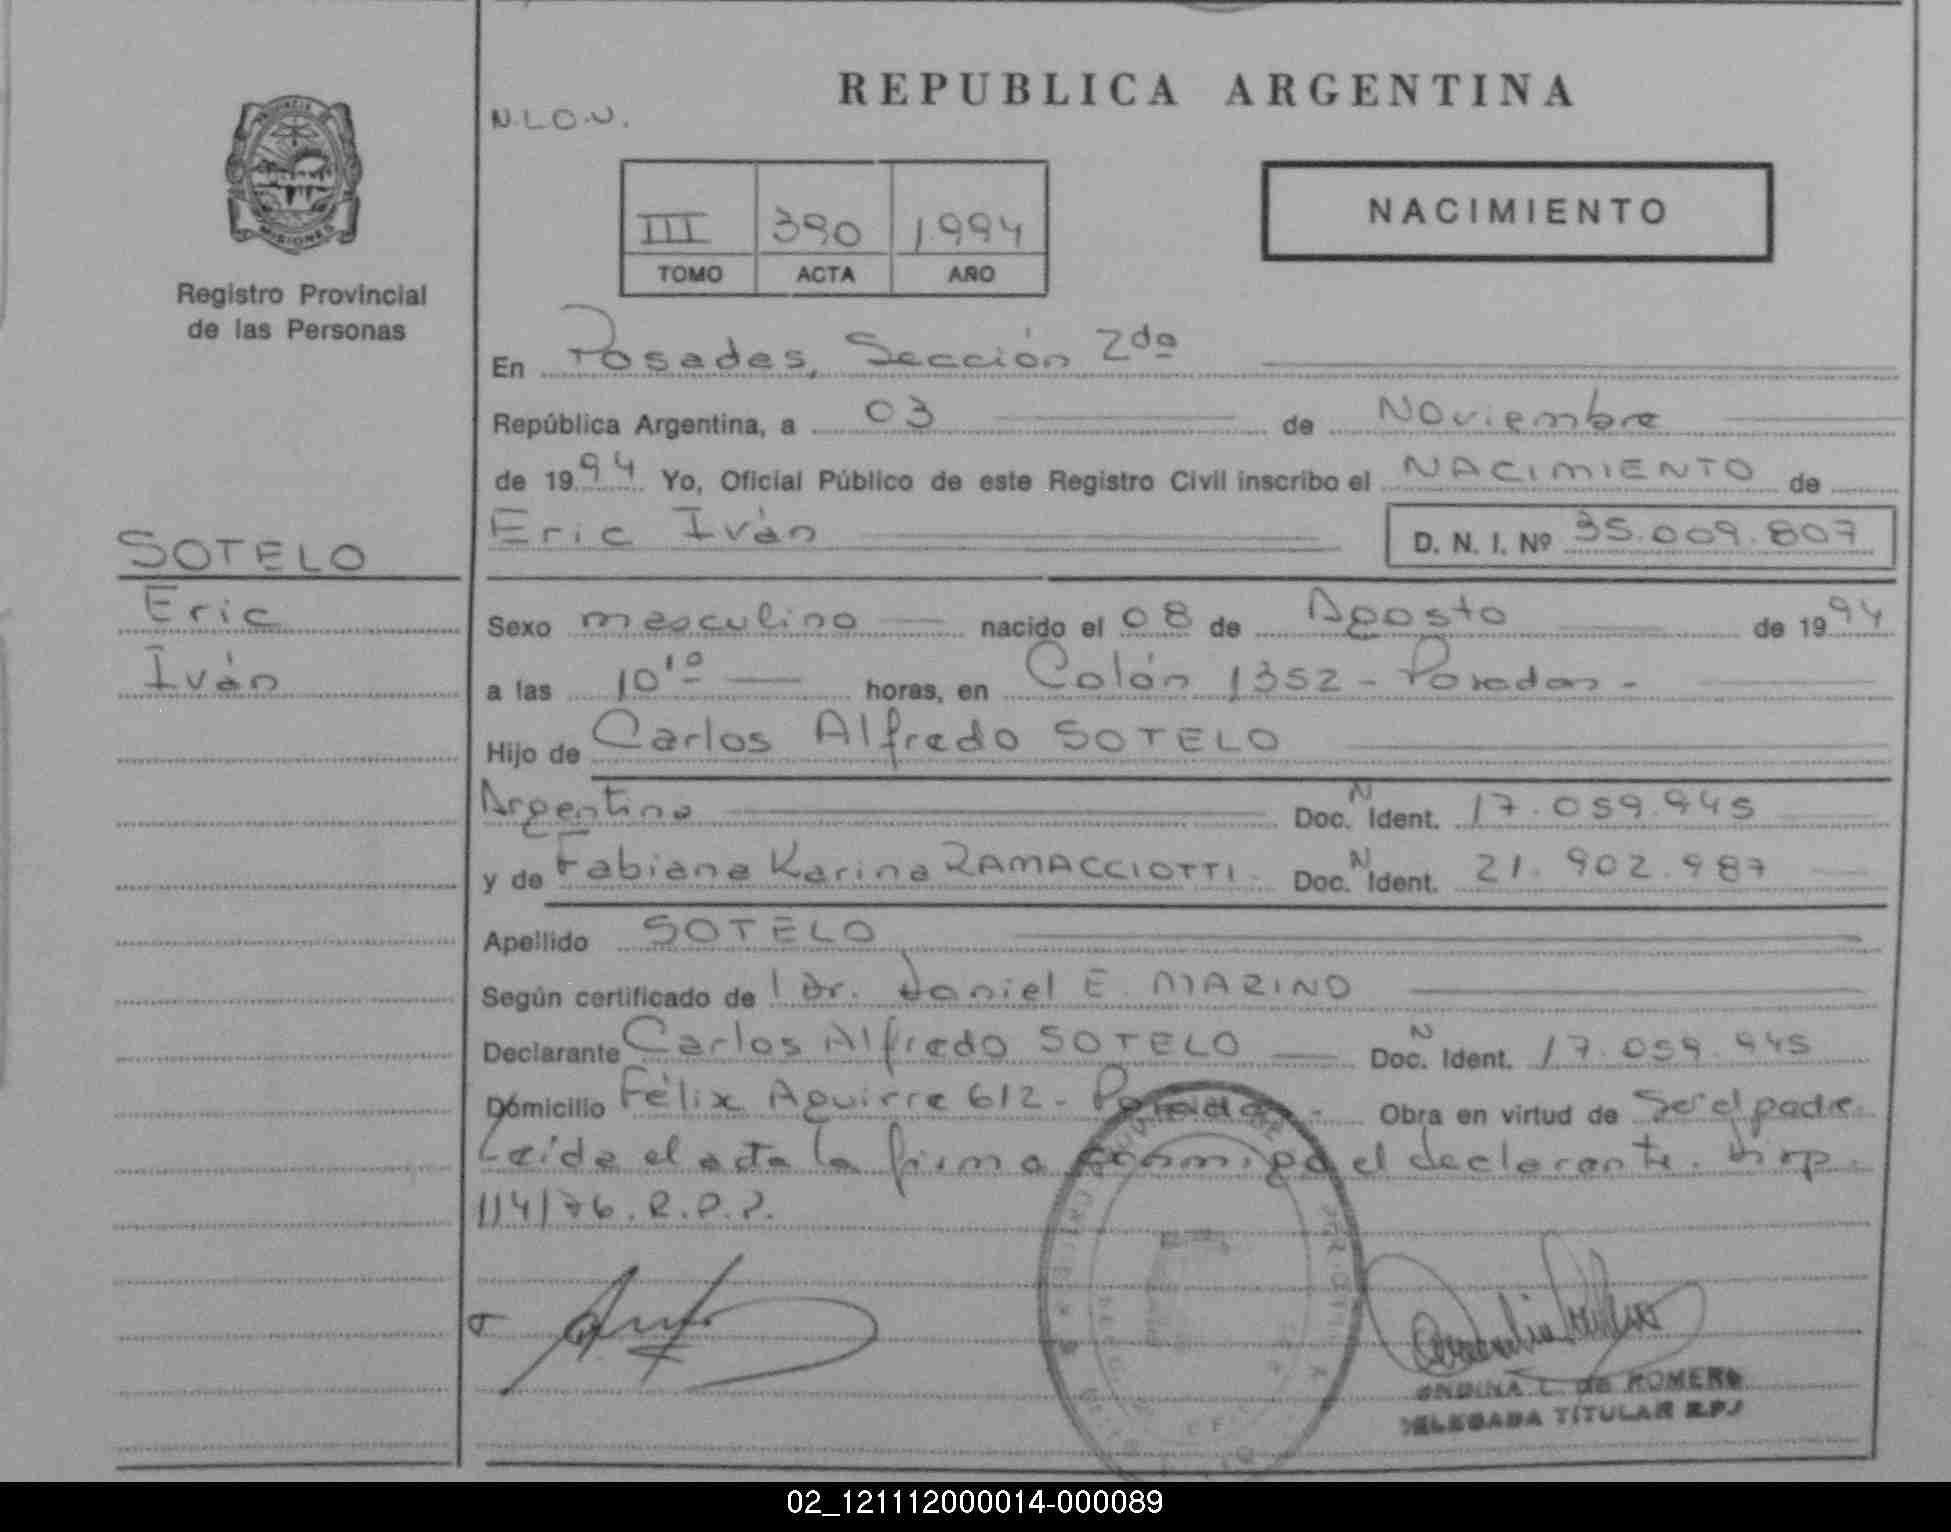 REPUBLICA ARGENTINA
N.L.O.U.
PROVINCIA
MISIONES
Registro Provincial
de las Personas
III 390 1.994
TOMO ACTA AÑO
NACIMIENTO
En Posadas, Sección 2da
República Argentina, a 03 de Noviembre
de 1994 Yo, Oficial Público de este Registro Civil inscribo el NACIMIENTO de
Eric Iván D. N. I. Nº 35.009.807
SOTELO
Eric
Iván
Sexo masculino nacido el 08 de Agosto de 1994
a las 10¹º horas, en Colón 1352 - Posadas -
Hijo de Carlos Alfredo SOTELO
Argentina Doc. N Ident. 17.059.945
y de Fabiana Karina RAMACCIOTTI - Doc. N Ident. 21.902.987
Apellido SOTELO
Según certificado de l Dr. Daniel E. MARINO
Declarante Carlos Alfredo SOTELO Doc. N Ident. 17.059.945
Domicilio Félix Aguirre 612 - Posadas - Obra en virtud de Ser el padre.
Leída el acta la firma conmigo el declarante. Disp.
114/76. R.P.P.
ONDINA L. de ROMERO
DELEGADA TITULAR R.P.P
02_121112000014-000089